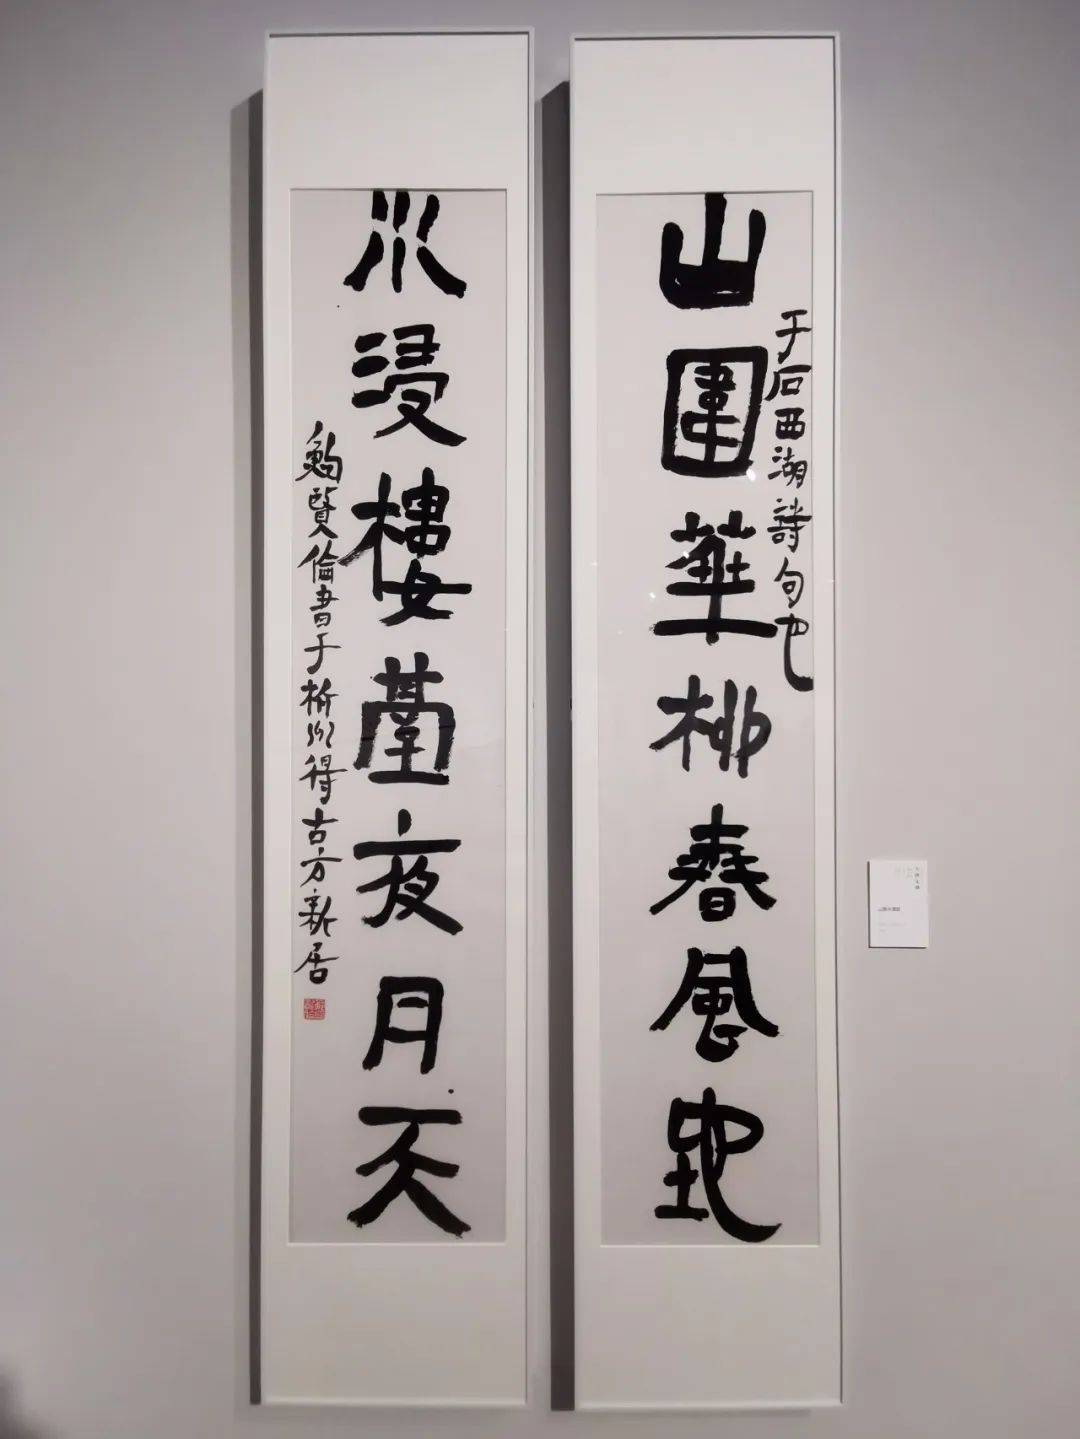 山圍華柳春風地
于石西湖詩句也
水浸樓臺夜月天
鮑賢倫書于杭州得古方新居